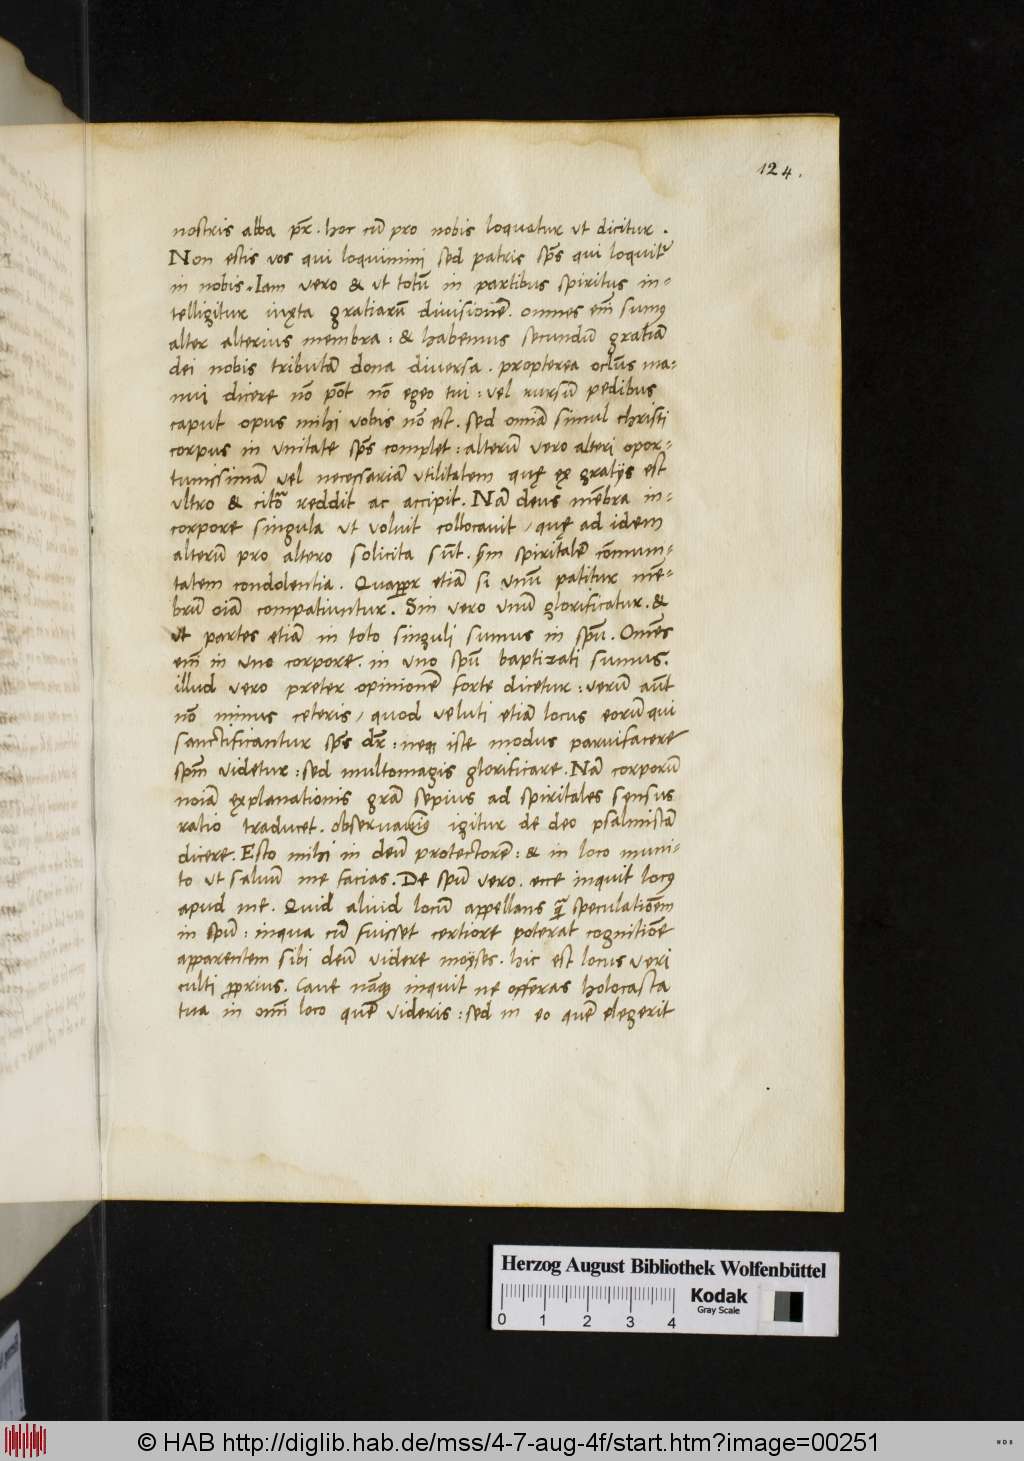 124.
nostris abba pr̄. hoc cū pro nobis loquatur ut dicitur.
Non estis vos qui loquimini sed patris sp̄s qui loquitr̄
in nobis. Iam vero & ut totū in partibus spiritus in-
telligitur iuxta gratiarū diuisionē. omnes em̄ sumꝰ
alter alterius membra: & habemus secundū gratiā
dei nobis tributā dona diuersa. propterea oclūs ma-
nui dicere nō pōt nō egeo tui: vel rursū pedibus
caput opus mihi vobis nō est. sed omīa simul christi
corpus in unitate sp̄s complet: alterū vero alteri opor-
tunissimā vel necessariā utilitatem quę ex gratijs est
ultro & citro reddit ac accipit. Nā deus mēbra in
corpore singula ut voluit collocauit / quę ad idem
alterū pro altero solicita sūt. s̄m spiritalē cōmuni-
tatem condolentia. Quapp̄r etiā si unū patitur mē-
brū oīā compatiuntur. Sin vero unū glorificatur. &
ut partes etiā in toto singuli sumus in spū. Omēs
em̄ in uno corpore. in uno spū baptizati sumus.
illud vero preter opinionē forte dicetur: verū aūt
nō minus ceteris / quod veluti etiā locus eorū qui
sanctificantur sp̄s dr̄: neqꝫ iste modus paruifacere
spm̄ videtur: sed multomagis glorificare. Nā corporū
noīā explanationis grā sepius ad spiritales sensus
ratio traducet. obseruamus igitur de deo psalmistā
dicere. Esto mihi in deū protectorē: & in loco muni-
to ut saluū me facias. De spū vero. ecce inquit locꝰ
apud me. Quid aliud locū appellans speculationem
in spū: inqua cū fuisset certiore poterat cognitiōe
apparentem sibi deū videre moyses. hic est locus veri
culti proprius. Caue nāqꝫ inquit ne offeras holocasta
tua in omī loco quē videris: sed in eo quē elegerit
Herzog August Bibliothek Wolfenbüttel
0 1 2 3 4
Kodak
Gray Scale
© HAB http://diglib.hab.de/mss/4-7-aug-4f/start.htm?image=00251
WDB